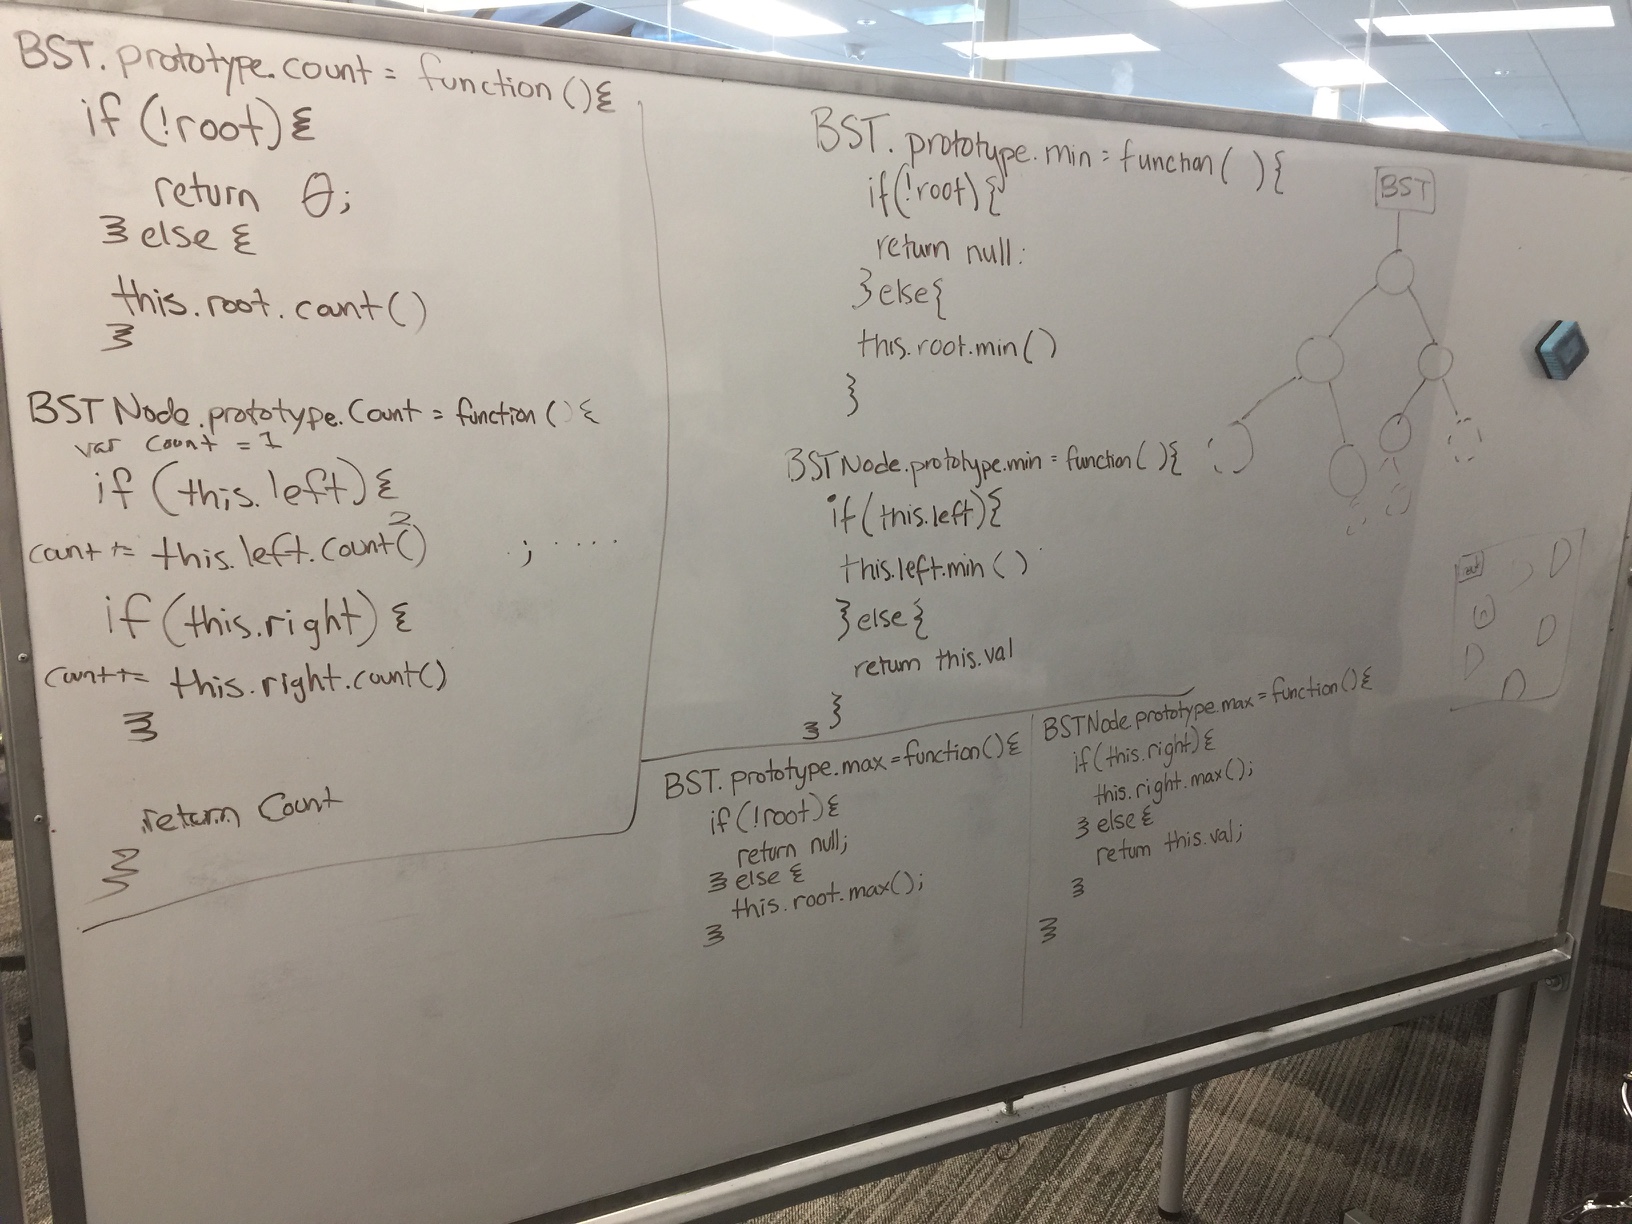 BST.prototype.count = function(){
if (!root){
return 0;
} else {
this.root.count()
}
BSTNode.prototype.Count = function(){
var count = 1
if (this.left){
2
count += this.left.count() ; ....
if (this.right) {
count += this.right.count()
}
return Count
}
BST.prototype.min = function( ){
if(!root){
return null;
}else{
this.root.min()
}
BSTNode.prototype.min = function( ){
if(this.left){
this.left.min()
}else{
return this.val
}
}
BST
BST.prototype.max = function(){
if(!root){
return null;
} else {
this.root.max();
}
BSTNode.prototype.max = function(){
if(this.right){
this.right.max();
} else {
return this.val;
}
}